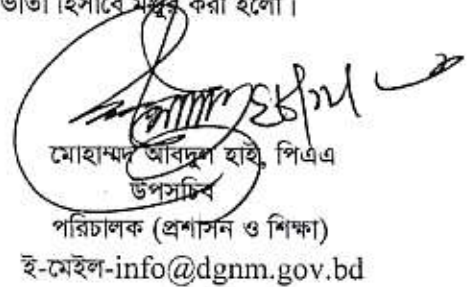 ভাতা হিসাবে মঞ্জুর করা হলো।
মোহাম্মদ আবদুল হাই, পিএএ
উপসচিব
পরিচালক (প্রশাসন ও শিক্ষা)
ই-মেইল-info@dgnm.gov.bd